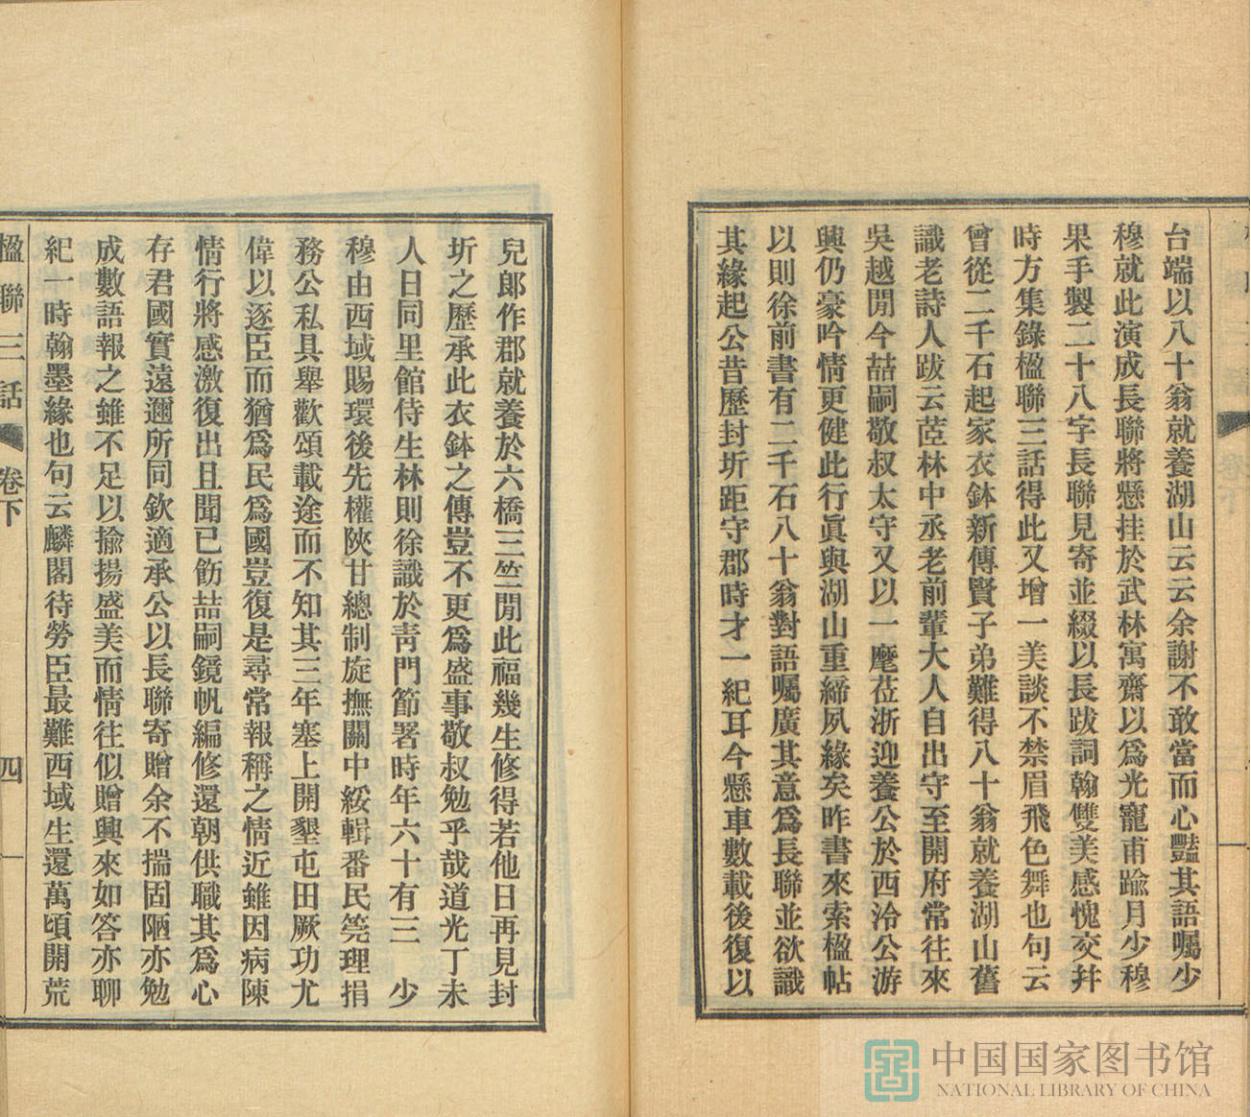 台端以八十翁就養湖山云云余謝不敢當而心豔其語囑少
穆就此演成長聯將懸挂於武林寓齋以爲光寵甫踰月少穆
果手製二十八字長聯見寄並綴以長跋詞翰雙美感愧交幷
時方集錄楹聯三話得此又增一美談不禁眉飛色舞也句云
曾從二千石起家衣鉢新傳賢子弟難得八十翁就養湖山舊
識老詩人跋云茝林中丞老前輩大人自出守至開府常往來
吳越閒今喆嗣敬叔太守又以一麾莅浙迎養公於西泠公游
興仍豪吟情更健此行眞與湖山重締夙緣矣昨書來索楹帖
以則徐前書有二千石八十翁對語囑廣其意爲長聯並欲識
其緣起公昔歷封圻距守郡時才一紀耳今懸車數載後復以
兒郞作郡就養於六橋三竺閒此福幾生修得若他日再見封
圻之歷承此衣鉢之傳豈不更爲盛事敬叔勉乎哉道光丁未
人日同里館侍生林則徐識於靑門節署時年六十有三 少
穆由西域賜環後先權陝甘總制旋撫關中綏輯番民筦理捐
務公私具舉歡頌載途而不知其三年塞上開墾屯田厥功尤
偉以逐臣而猶爲民爲國豈復是尋常報稱之情近雖因病陳
情行將感激復出且聞已飭喆嗣鏡帆編修還朝供職其爲心
存君國實遠邇所同欽適承公以長聯寄贈余不揣固陋亦勉
成數語報之雖不足以揄揚盛美而情往似贈興來如答亦聊
紀一時翰墨緣也句云麟閣待勞臣最難西域生還萬頃開荒
楹聯三話 卷下 四
中国国家图书馆
NATIONAL LIBRARY OF CHINA